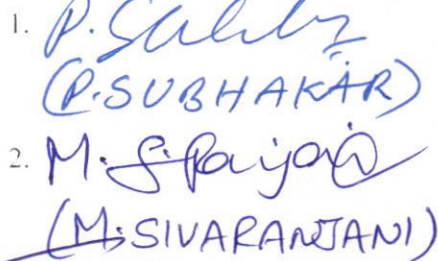 1. P.
(P.SUBHAKAR)
2. M.
(M.SIVARANJANI)